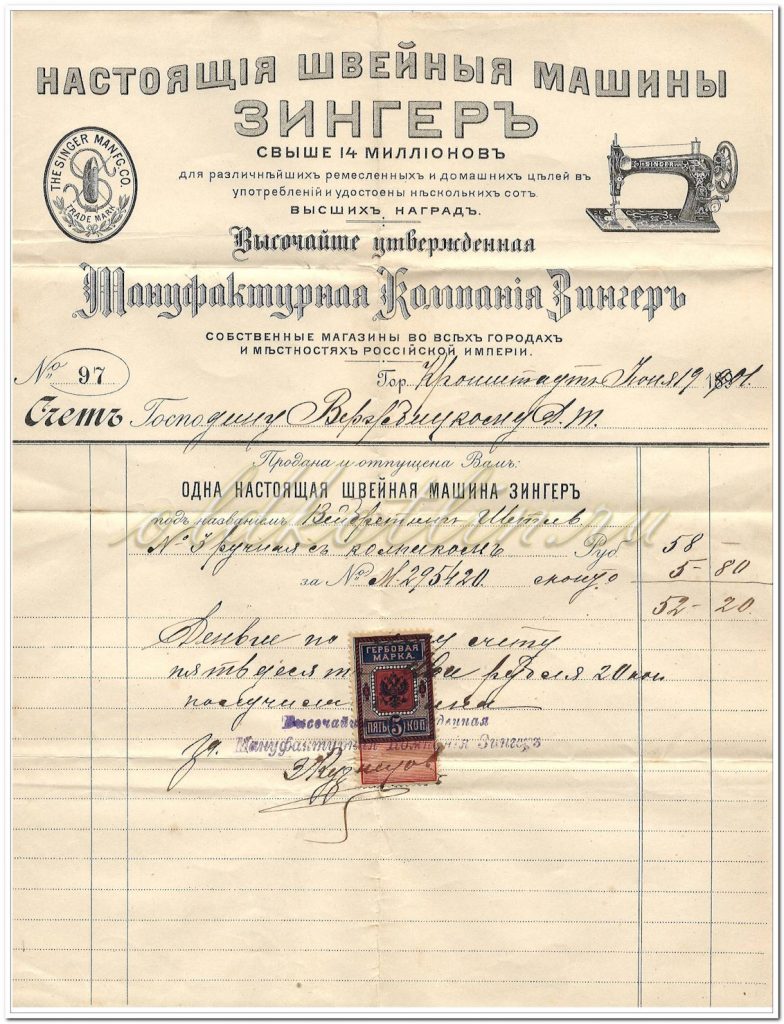 НАСТОЯЩІЯ ШВЕЙНЫЯ МАШИНЫ
ЗИНГЕРЪ
СВЫШЕ 14 МИЛЛІОНОВЪ
для различнѣйшихъ ремесленныхъ и домашнихъ цѣлей въ
употребленій и удостоены нѣсколькихъ сотъ
ВЫСШИХЪ НАГРАДЪ.
THE SINGER MANFG. CO.
TRADE MARK
SINGER
Высочайше утвержденная
Мануфактурная Компанія Зингеръ
СОБСТВЕННЫЕ МАГАЗИНЫ ВО ВСѢХЪ ГОРОДАХЪ
И МѢСТНОСТЯХЪ РОССІЙСКОЙ ИМПЕРІИ.
№ 97
Гор. Кронштадтъ Іюня 19 1901.
Счетъ Господину Вержбицкому Д. Т.
Продана и отпущена Вамъ:
ОДНА НАСТОЯЩАЯ ШВЕЙНАЯ МАШИНА ЗИНГЕРЪ
подъ названіемъ
№ 3 ручная съ колпакомъ Руб 58 –
за № М-295420. 5 – 80
52 – 20
Деньги по счету
рубля 20 коп
получила
ГЕРБОВАЯ
МАРКА.
ПЯТЬ 5 КОП
Мануфактурная Компанія Зингеръ
За.
oldkotlin.ru